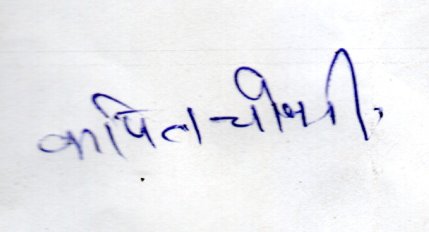 कपिल चौधरी